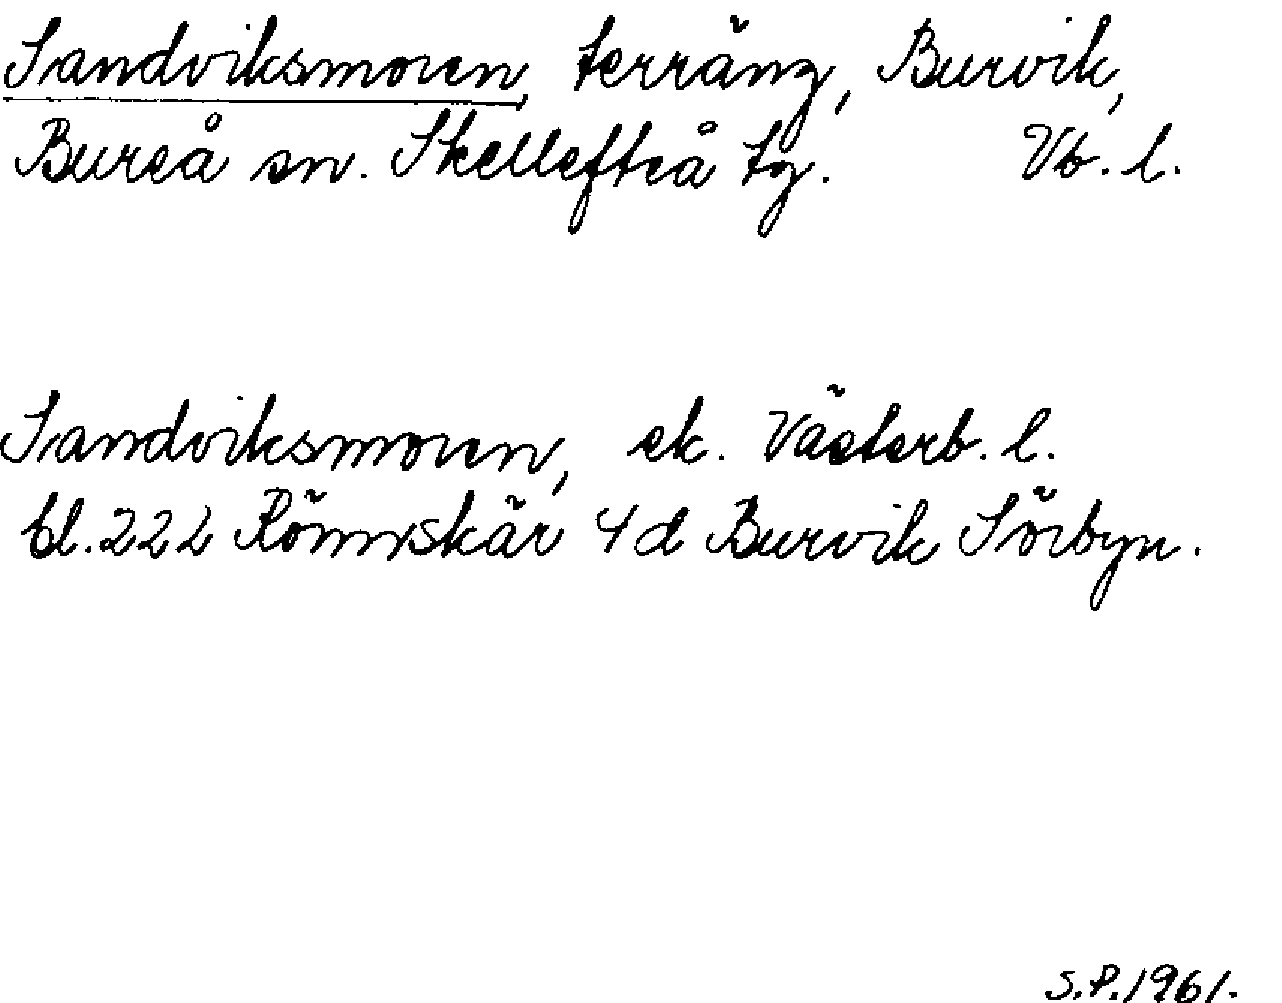 Sandviksmoren, terräng, Burvik,
Bureå sn. Skellefteå tg. Vb. l.
Sandviksmoren, ek. Västerb. l.
bl. 222 Rönnskär 4d Burvik Sörbyn.
S.P. 1961.